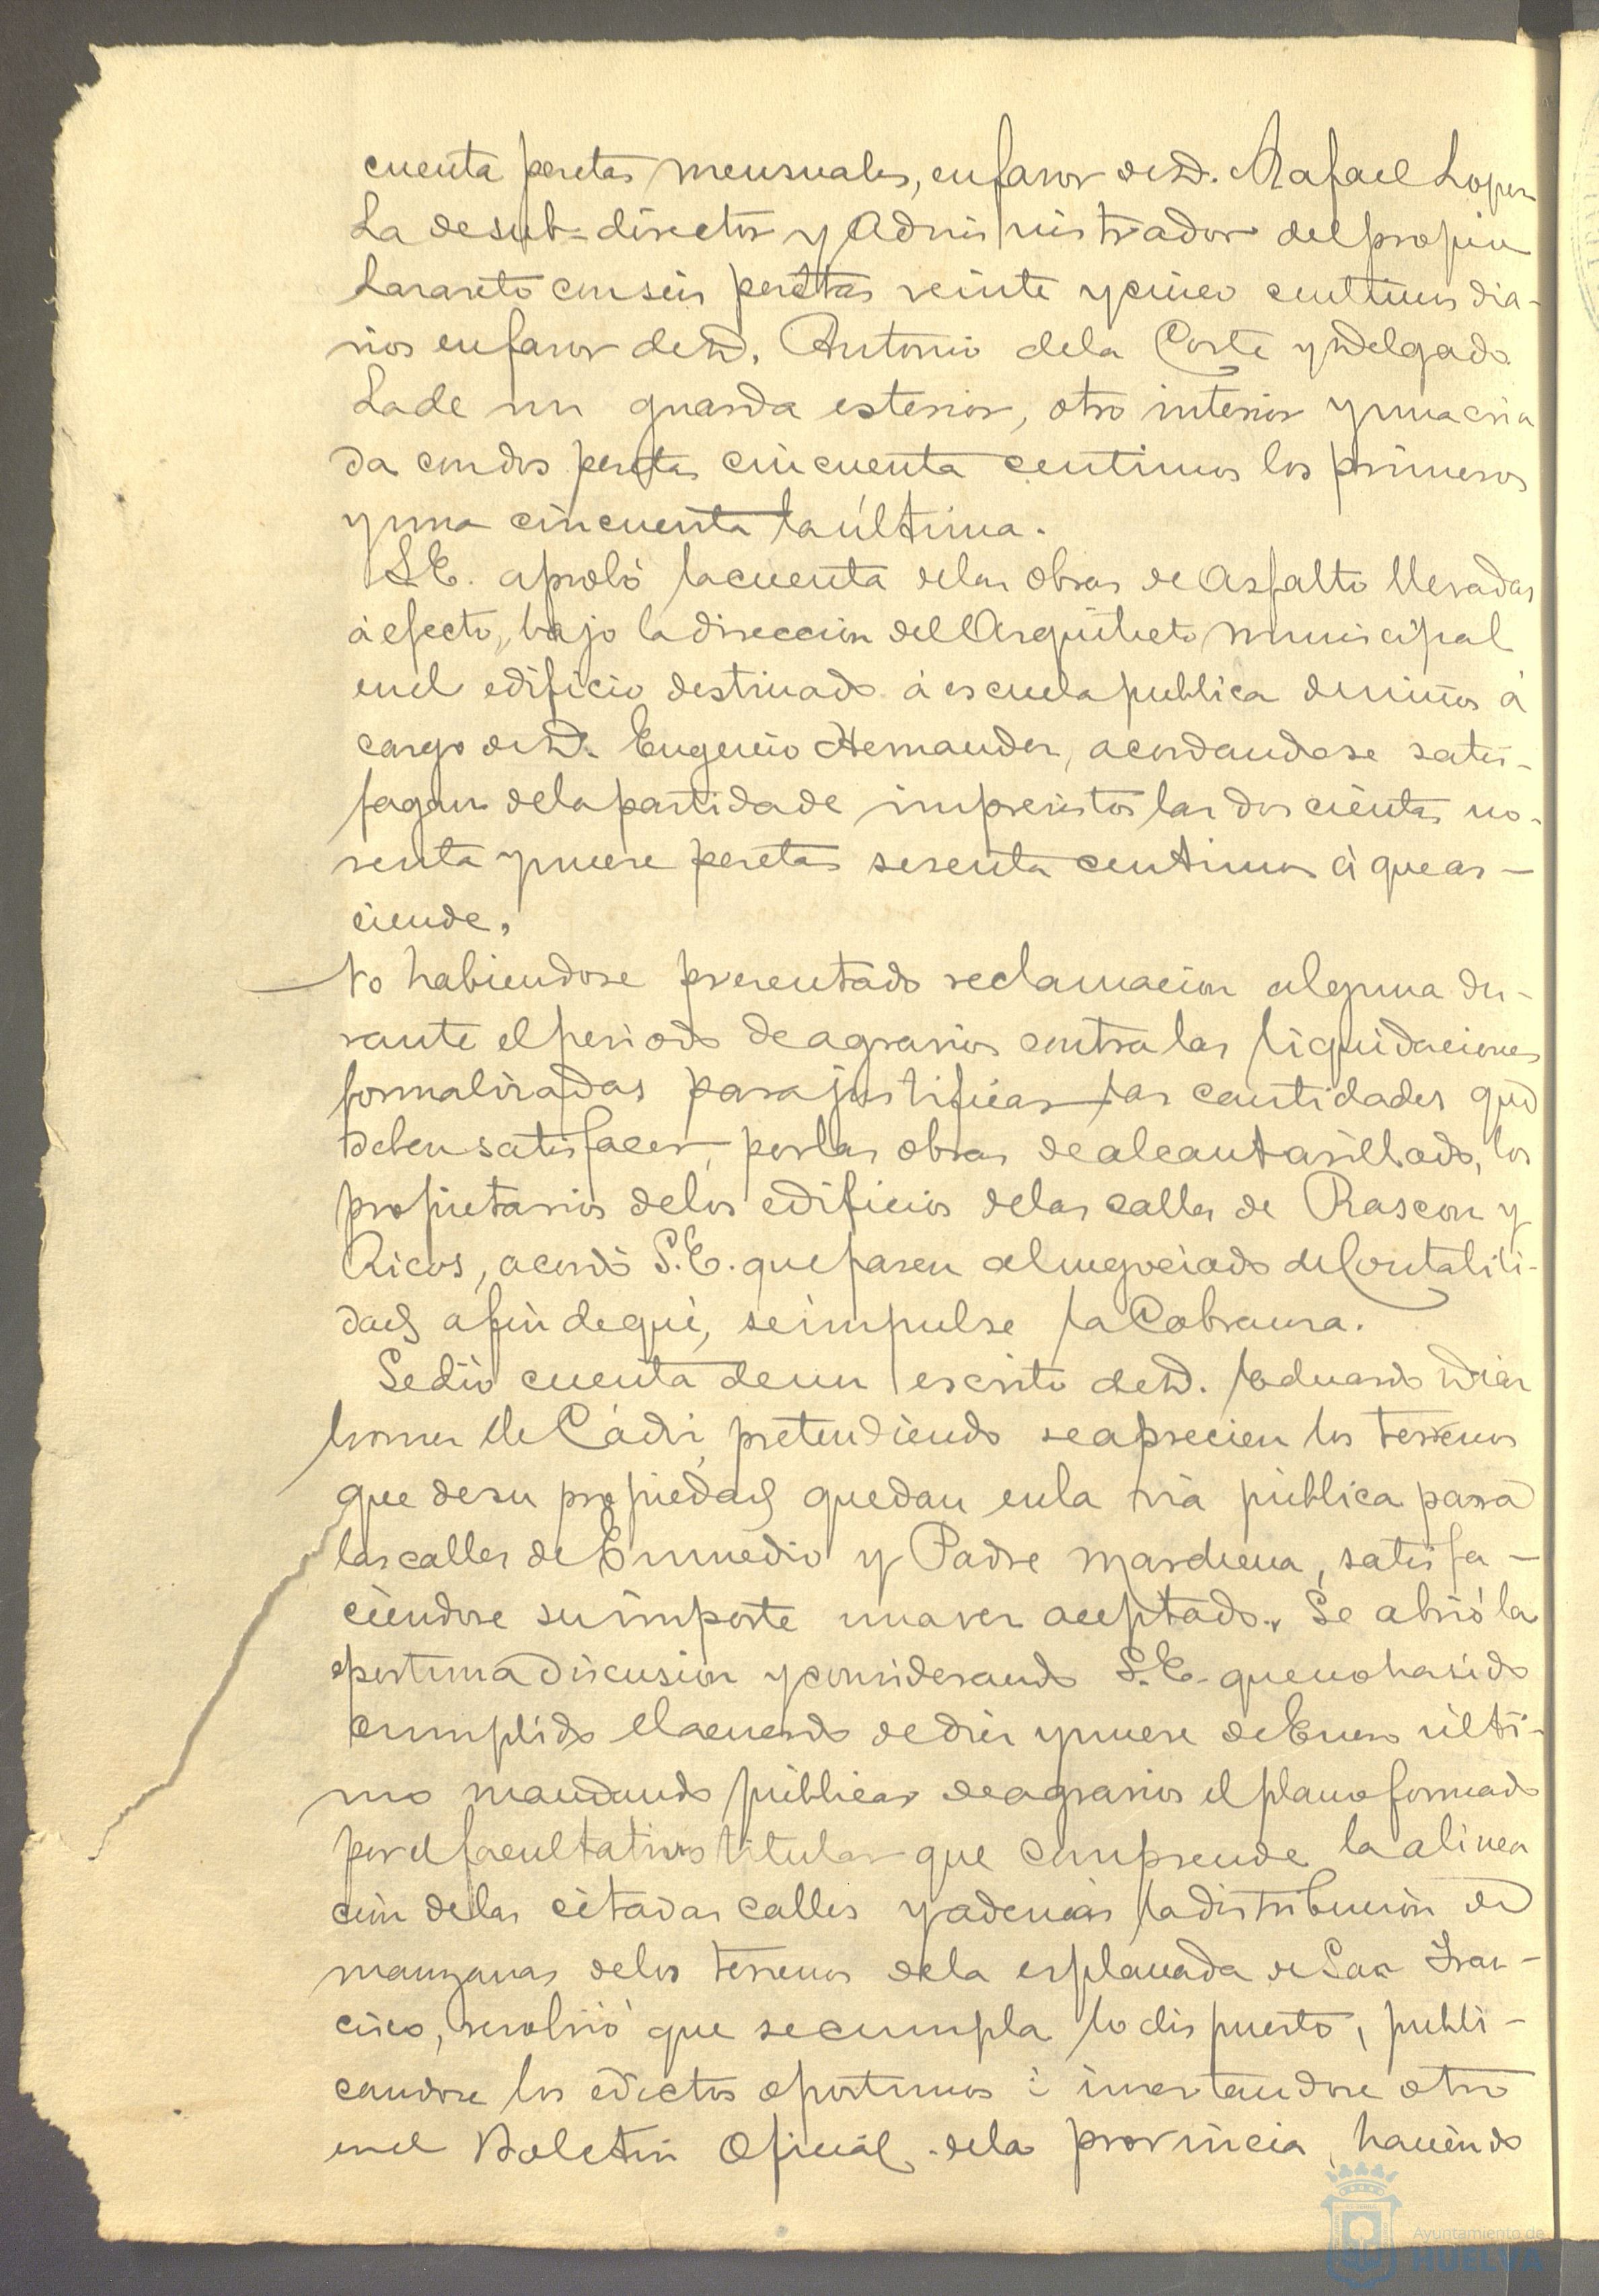 cuenta pesetas mensuales, en favor de D. Rafael Lopez
La de sub-director y Administrador del propio
Lazareto con seis pesetas veinte y cinco centimos dia-
rios en favor de D. Antonio de la Corte y Delgado
La de un guarda esterior, otro interior y una cria
da con dos pesetas cincuenta centimos los primeros
y una cincuenta la última.
S.E. aprobó la cuenta de las obras de Asfalto llevadas
á efecto, bajo la direccion del Arquitecto municipal
en el edificio destinado á escuela publica de niños á
cargo de D. Eugenio Hernandez, acordandose satis-
fagan de la partida de imprevistos las dos cientas no-
venta y nueve pesetas sesenta centimos á que as-
ciende.
No habiendose presentado reclamacion alguna du-
rante el periodo de agravios contra las liquidaciones
formalizadas para justificar las cantidades que
deben satisfacer, por las obras de alcantarillado, los
propietarios de los edificios de las calles de Rascon y
Ricos, acordó S.E. que pasen al negociado de Contabili-
dad á fin de que, se impulse la Cobranza.
Se dió cuenta de un escrito de D. Eduardo Diaz
Gomez de Cádiz, pretendiendo se aprecien los terrenos
que de su propiedad quedan en la via pública para
las calles de Enmedio y Padre Marchena, satisfa-
ciendose su importe una vez aceptado. Se abrió la
oportuna discusion y considerando S.E. que no ha sido
cumplido el acuerdo de diez y nueve de Enero últi-
mo mandando públicar de agravios el plano formado
por el facultativo titular que comprende la alinea
cion de las citadas calles y además la distribucion de
manzanas de los terrenos de la esplanada de San Fran-
cisco, resolvió que se cumpla lo dispuesto, publi-
candose los edictos oportunos é insertandose otro
en el Boletin Oficial de la provincia, haciendo
Ayuntamiento de
HUELVA